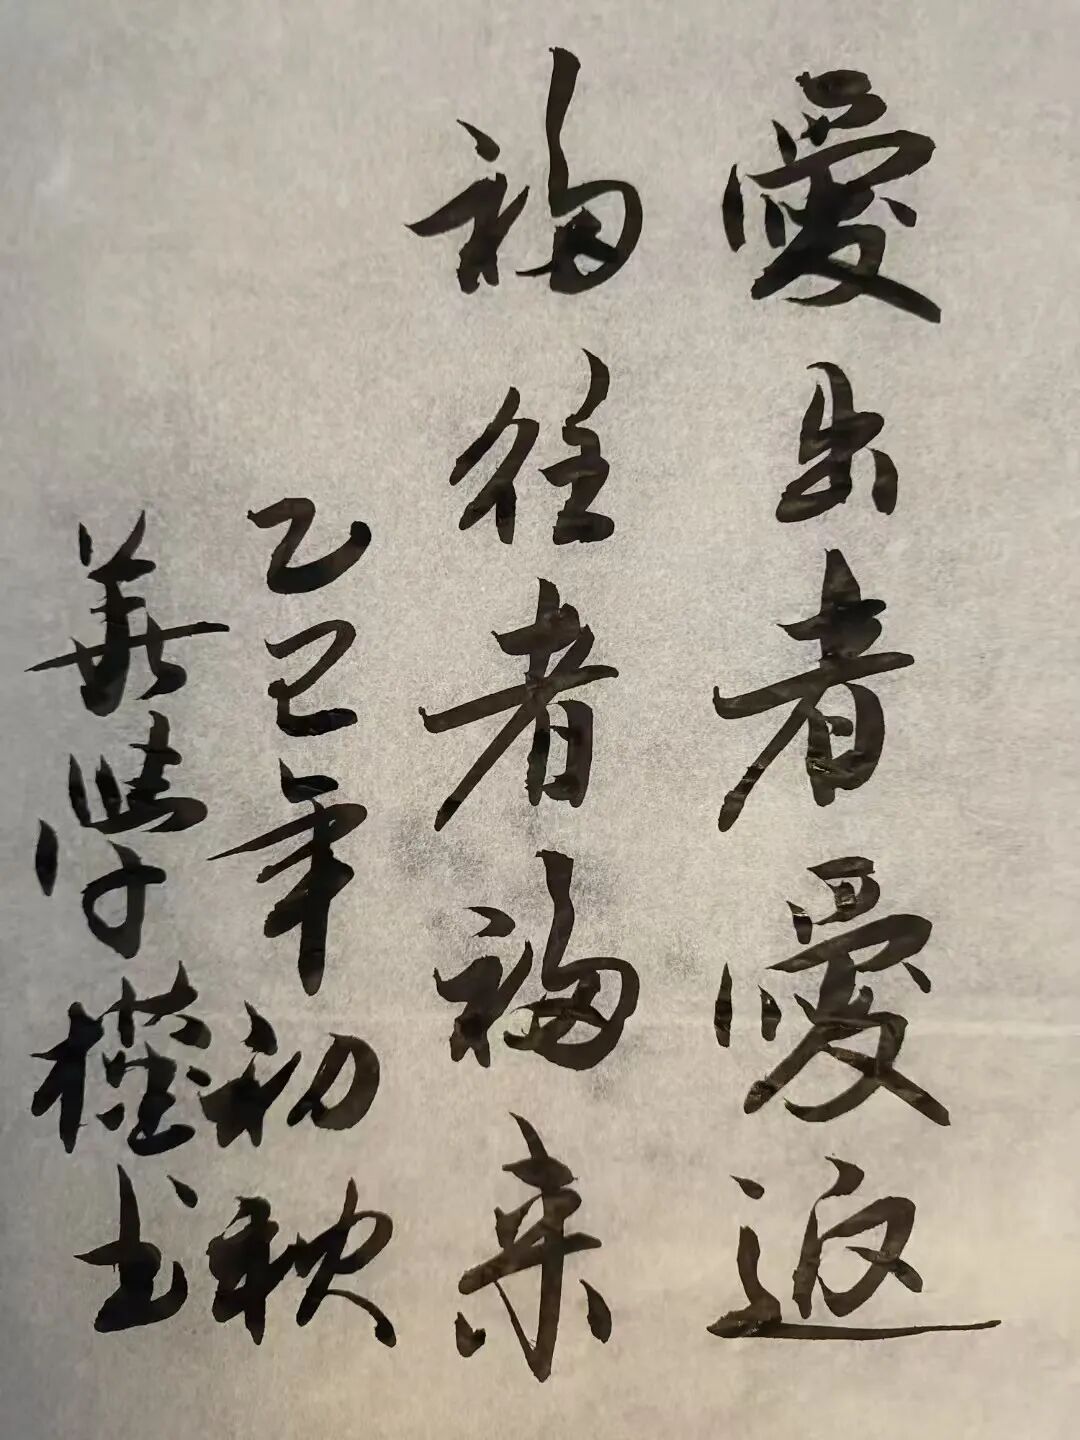 愛出者愛返
福往者福来
乙巳年初秋
學權书